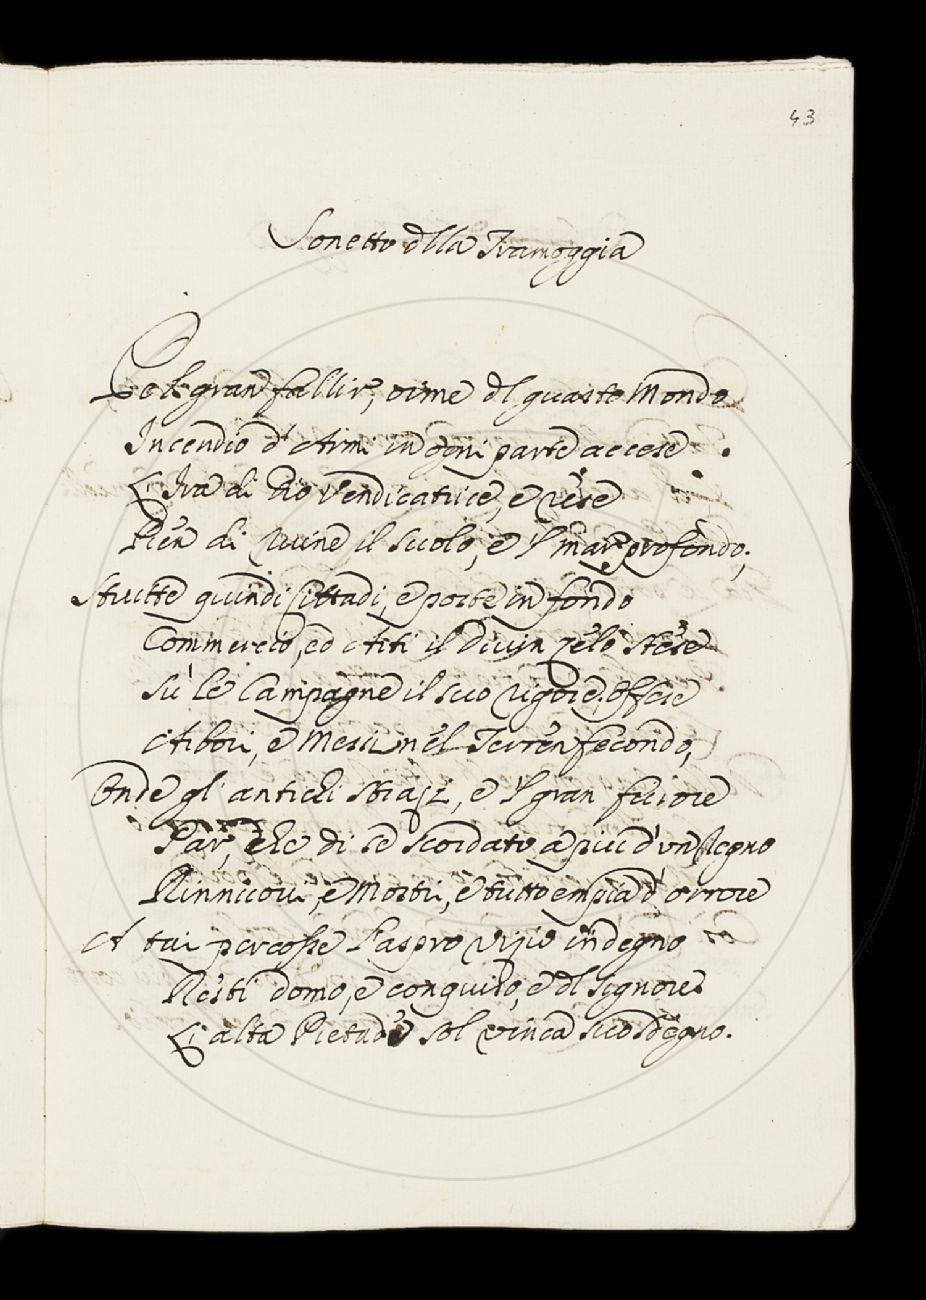 43
Sonetto dlla Tramoggia
Pel gran fallir, oime dl guasto Mondo
Incendio d'Armi in ogni parte accese
L'Ira di Dio Vendicatrice, e rese
Pien di ruine il suolo, e 'l mar profondo;
Strutte quindi Cittadi, e poste in fondo
Commercio, ed Arti il Divin zelo stese
Sù le Campagne il suo rigore, Offese
Arbori, e Messi nel Terren fecondo,
Onde gl'antichi strazi, e 'l gran furore
Par, che di se scordato a più d'un Regno
Rinnovi, e Mostri, e tutto empia d'orrore
A tai percosse l'aspro vizio indegno
Resti domo, e conquiso, e dl Signore
L'alta Pietade sol vinca suo sdegno.